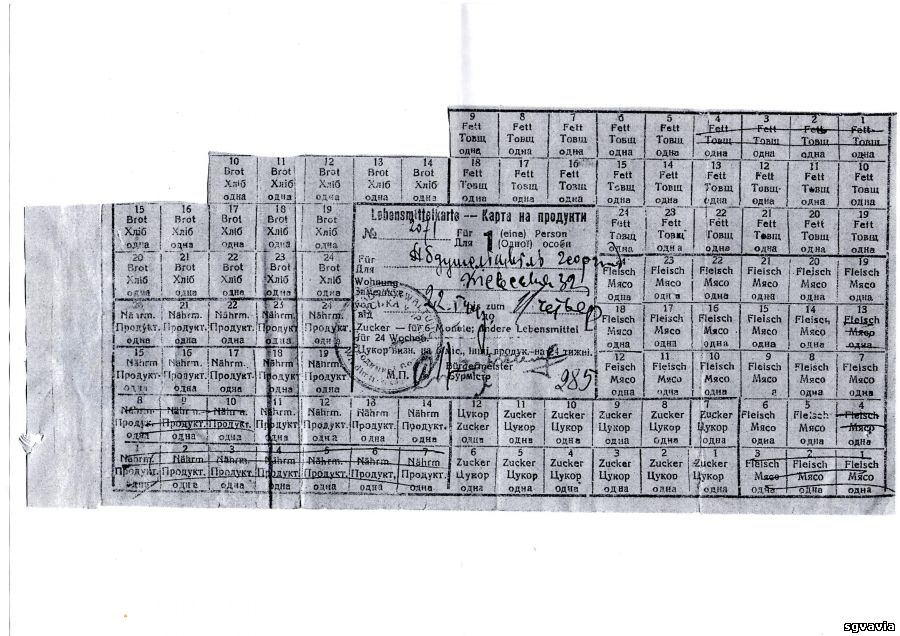 9 8 7 6 5 4 3 2 1
Fett Fett Fett Fett Fett Fett Fett Fett Fett
Товщ Товщ Товщ Товщ Товщ Товщ Товщ Товщ Товщ
одна одна одна одна одна одна одна одна одна
10 11 12 13 14 18 17 16 15 14 13 12 11 10
Brot Brot Brot Brot Brot Fett Fett Fett Fett Fett Fett Fett Fett Fett
Хліб Хліб Хліб Хліб Хліб Товщ Товщ Товщ Товщ Товщ Товщ Товщ Товщ Товщ
одна одна одна одна одна одна одна одна одна одна одна одна одна одна
15 16 17 18 19
Brot Brot Brot Brot Brot
Хліб Хліб Хліб Хліб Хліб
одна одна одна одна одна
20 21 22 23 24
Brot Brot Brot Brot Brot
Хліб Хліб Хліб Хліб Хліб
одна одна одна одна одна
Lebensmittelkarte — Карта на продукти
№ 2071
Für 1 (eine) Person
Для (Одної) особи
Für
Для
Wohnung
від bis zum
Zucker — für 6 Monate; andere Lebensmittel
für 24 Wochen.
Bürgermeister
Бурмістр
М.П.
985
24 23 22 21 20 19
Fett Fett Fett Fett Fett Fett
Товщ Товщ Товщ Товщ Товщ Товщ
одна одна одна одна одна одна
24 23 22 21 20 19
Fleisch Fleisch Fleisch Fleisch Fleisch Fleisch
Мясо Мясо Мясо Мясо Мясо Мясо
одна одна одна одна одна одна
18 17 16 15 14 13
Fleisch Fleisch Fleisch Fleisch Fleisch Fleisch
Мясо Мясо Мясо Мясо Мясо Мясо
одна одна одна одна одна одна
12 11 10 9 8 7
Fleisch Fleisch Fleisch Fleisch Fleisch Fleisch
Мясо Мясо Мясо Мясо Мясо Мясо
одна одна одна одна одна одна
20 21 22 23 24
Nährm. Nährm. Nährm. Nährm. Nährm.
Продукт. Продукт. Продукт. Продукт. Продукт.
одна одна одна одна одна
15 16 17 18 19
Nährm. Nährm. Nährm. Nährm. Nährm.
Продукт. Продукт. Продукт. Продукт. Продукт.
одна одна одна одна одна
8 9 10 11 12 13 14 12 11 10 9 8 7 6 5 4
Nährm. Nährm. Nährm. Nährm. Nährm. Nährm. Nährm Цукор Zucker Zucker Zucker Zucker Zucker Fleisch Fleisch Fleisch
Продукт. Продукт. Продукт. Продукт. Продукт. Продукт. Продукт. Zucker Цукор Цукор Цукор Цукор Цукор Мясо Мясо Мясо
одна одна одна одна одна одна одна одна одна одна одна одна одна одна одна одна
1 2 3 4 5 6 7 6 5 4 3 2 1 3 2 1
Nährm. Nährm. Nährm. Nährm. Nährm. Nährm. Nährm Zucker Zucker Zucker Zucker Zucker Zucker Fleisch Fleisch Fleisch
Продукт. Продукт. Продукт. Продукт. Продукт. Продукт. Продукт. Цукор Цукор Цукор Цукор Цукор Цукор Мясо Мясо Мясо
одна одна одна одна одна одна одна одна одна одна одна одна одна одна одна одна
sgvavia